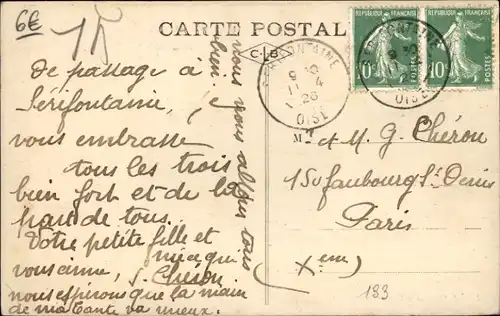 6€
15
CARTE POSTALE
C B
RÉPUBLIQUE FRANÇAISE
RÉPUBLIQUE FRANÇAISE
10
POSTES
SÉRIFONTAINE
9
11 4
26
OISE
SÉRIFONTAINE
OISE
De passage à
Sérifontaine,
vous embrasse
tous les trois
bien fort et de la
part de tous.
Votre petite fille et
nièce qui
vous aime, S. Chéron
nous espérons que la main
de ma tante va mieux.
nous vous allons tous
bien.
M. et M. G. Chéron
150 faubourg St Denis
Paris
(Xem)
183